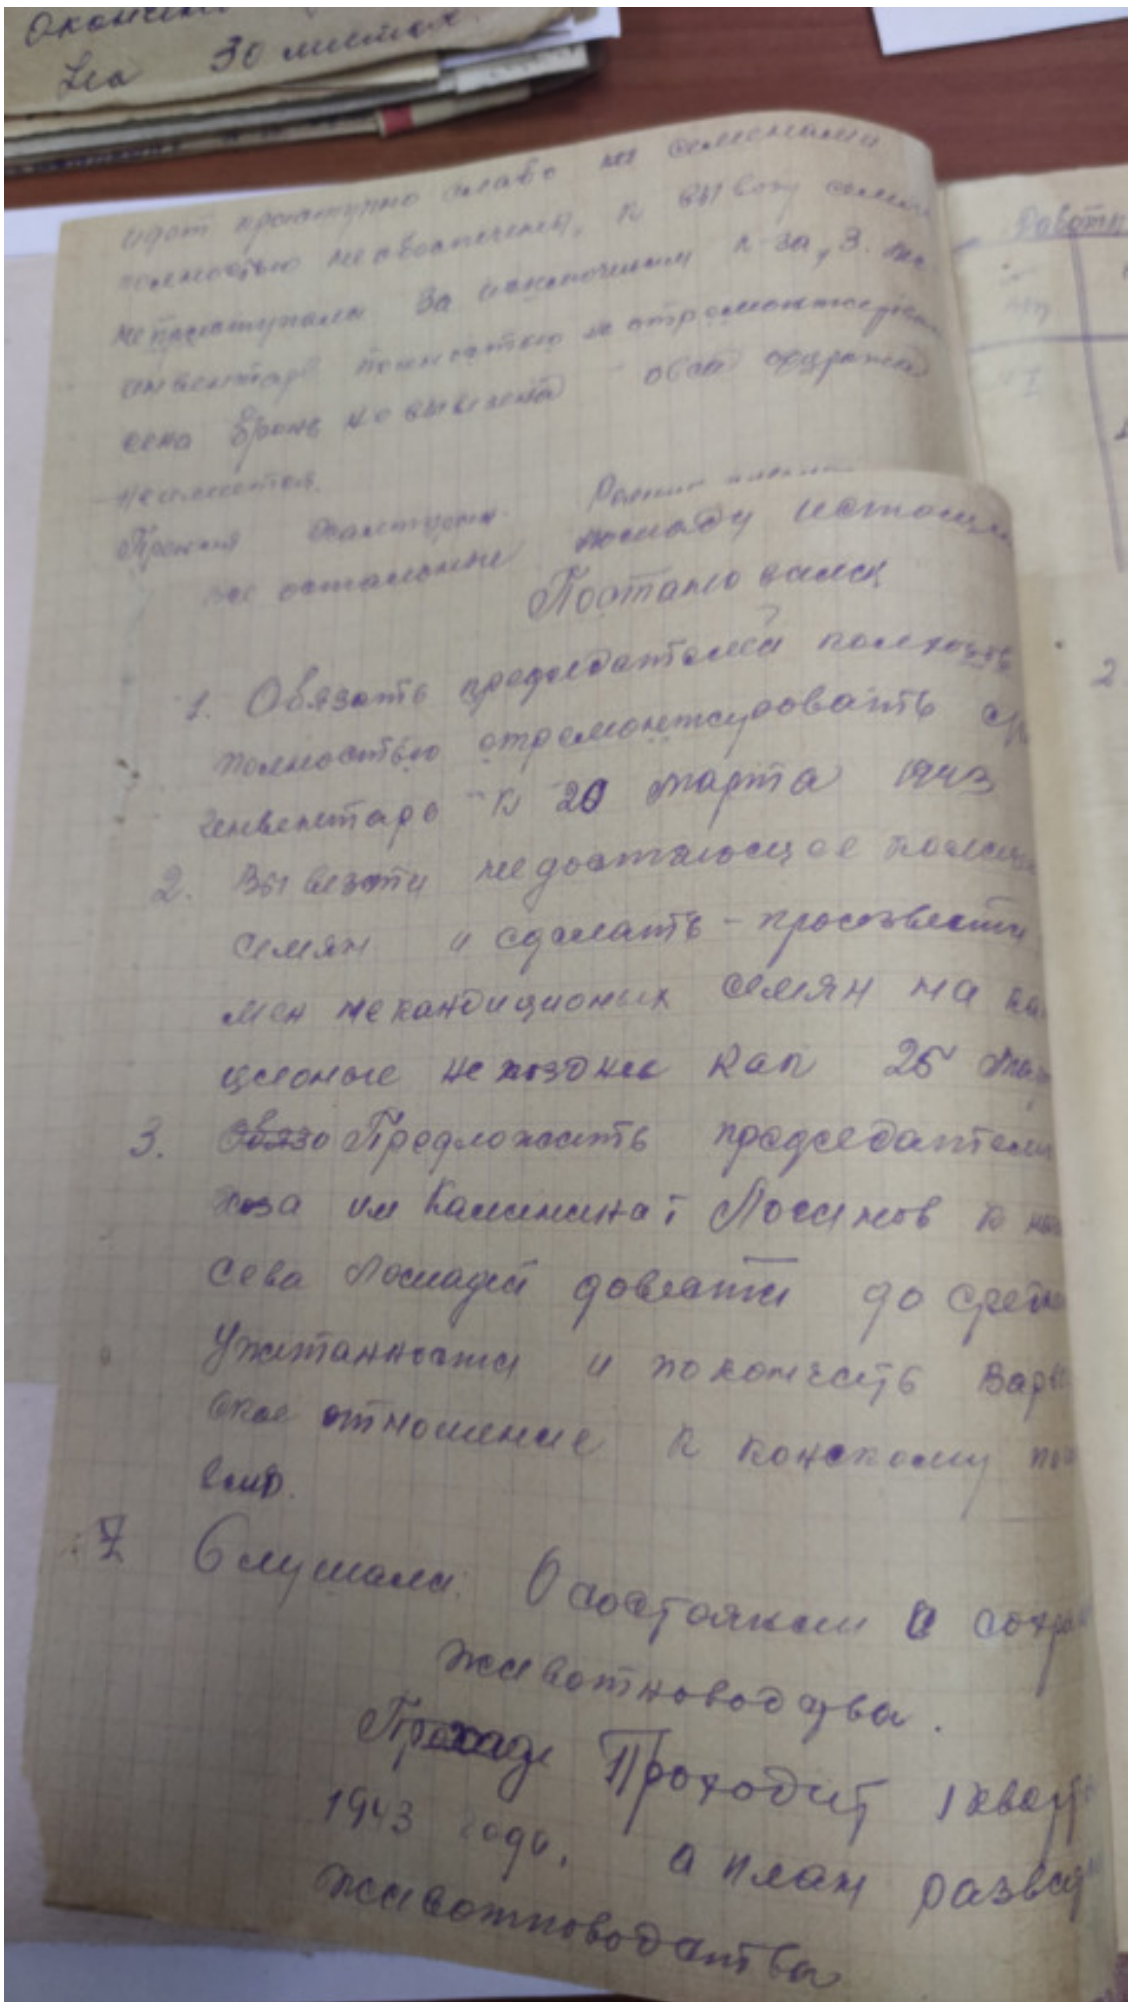 Окончен
На 30 листах
идет преступно слабо семенами
полностью не обеспечены, к вывозу семян
не преступали За исключением к-за, 3.
инвентарь полностью не отремонтирован
сена бронь не вывезена
не имеется.
Прения
все остальные лошади истощен
Постановили
1. Обязать председателей колхозов
полностью отремонтировать
инвентарь к 20 марта 1943
2. Вывезти недостающее колич
семян и сделать - произвести
мен некандиционых семян на кан
ционые не позднее как 25 мар
3. Обязо Предложить председателям
хоза им Калинина: Логинов к
сева лошадей довести до средне
ужитанности и покончить варвар
ское отношение к конскому пого
ловю.
7 Слушали: О состоянии и сохран
животноводства.
Проходе Проходит 1 кварт
1943 года, а план развед
животноводства
Работ
2